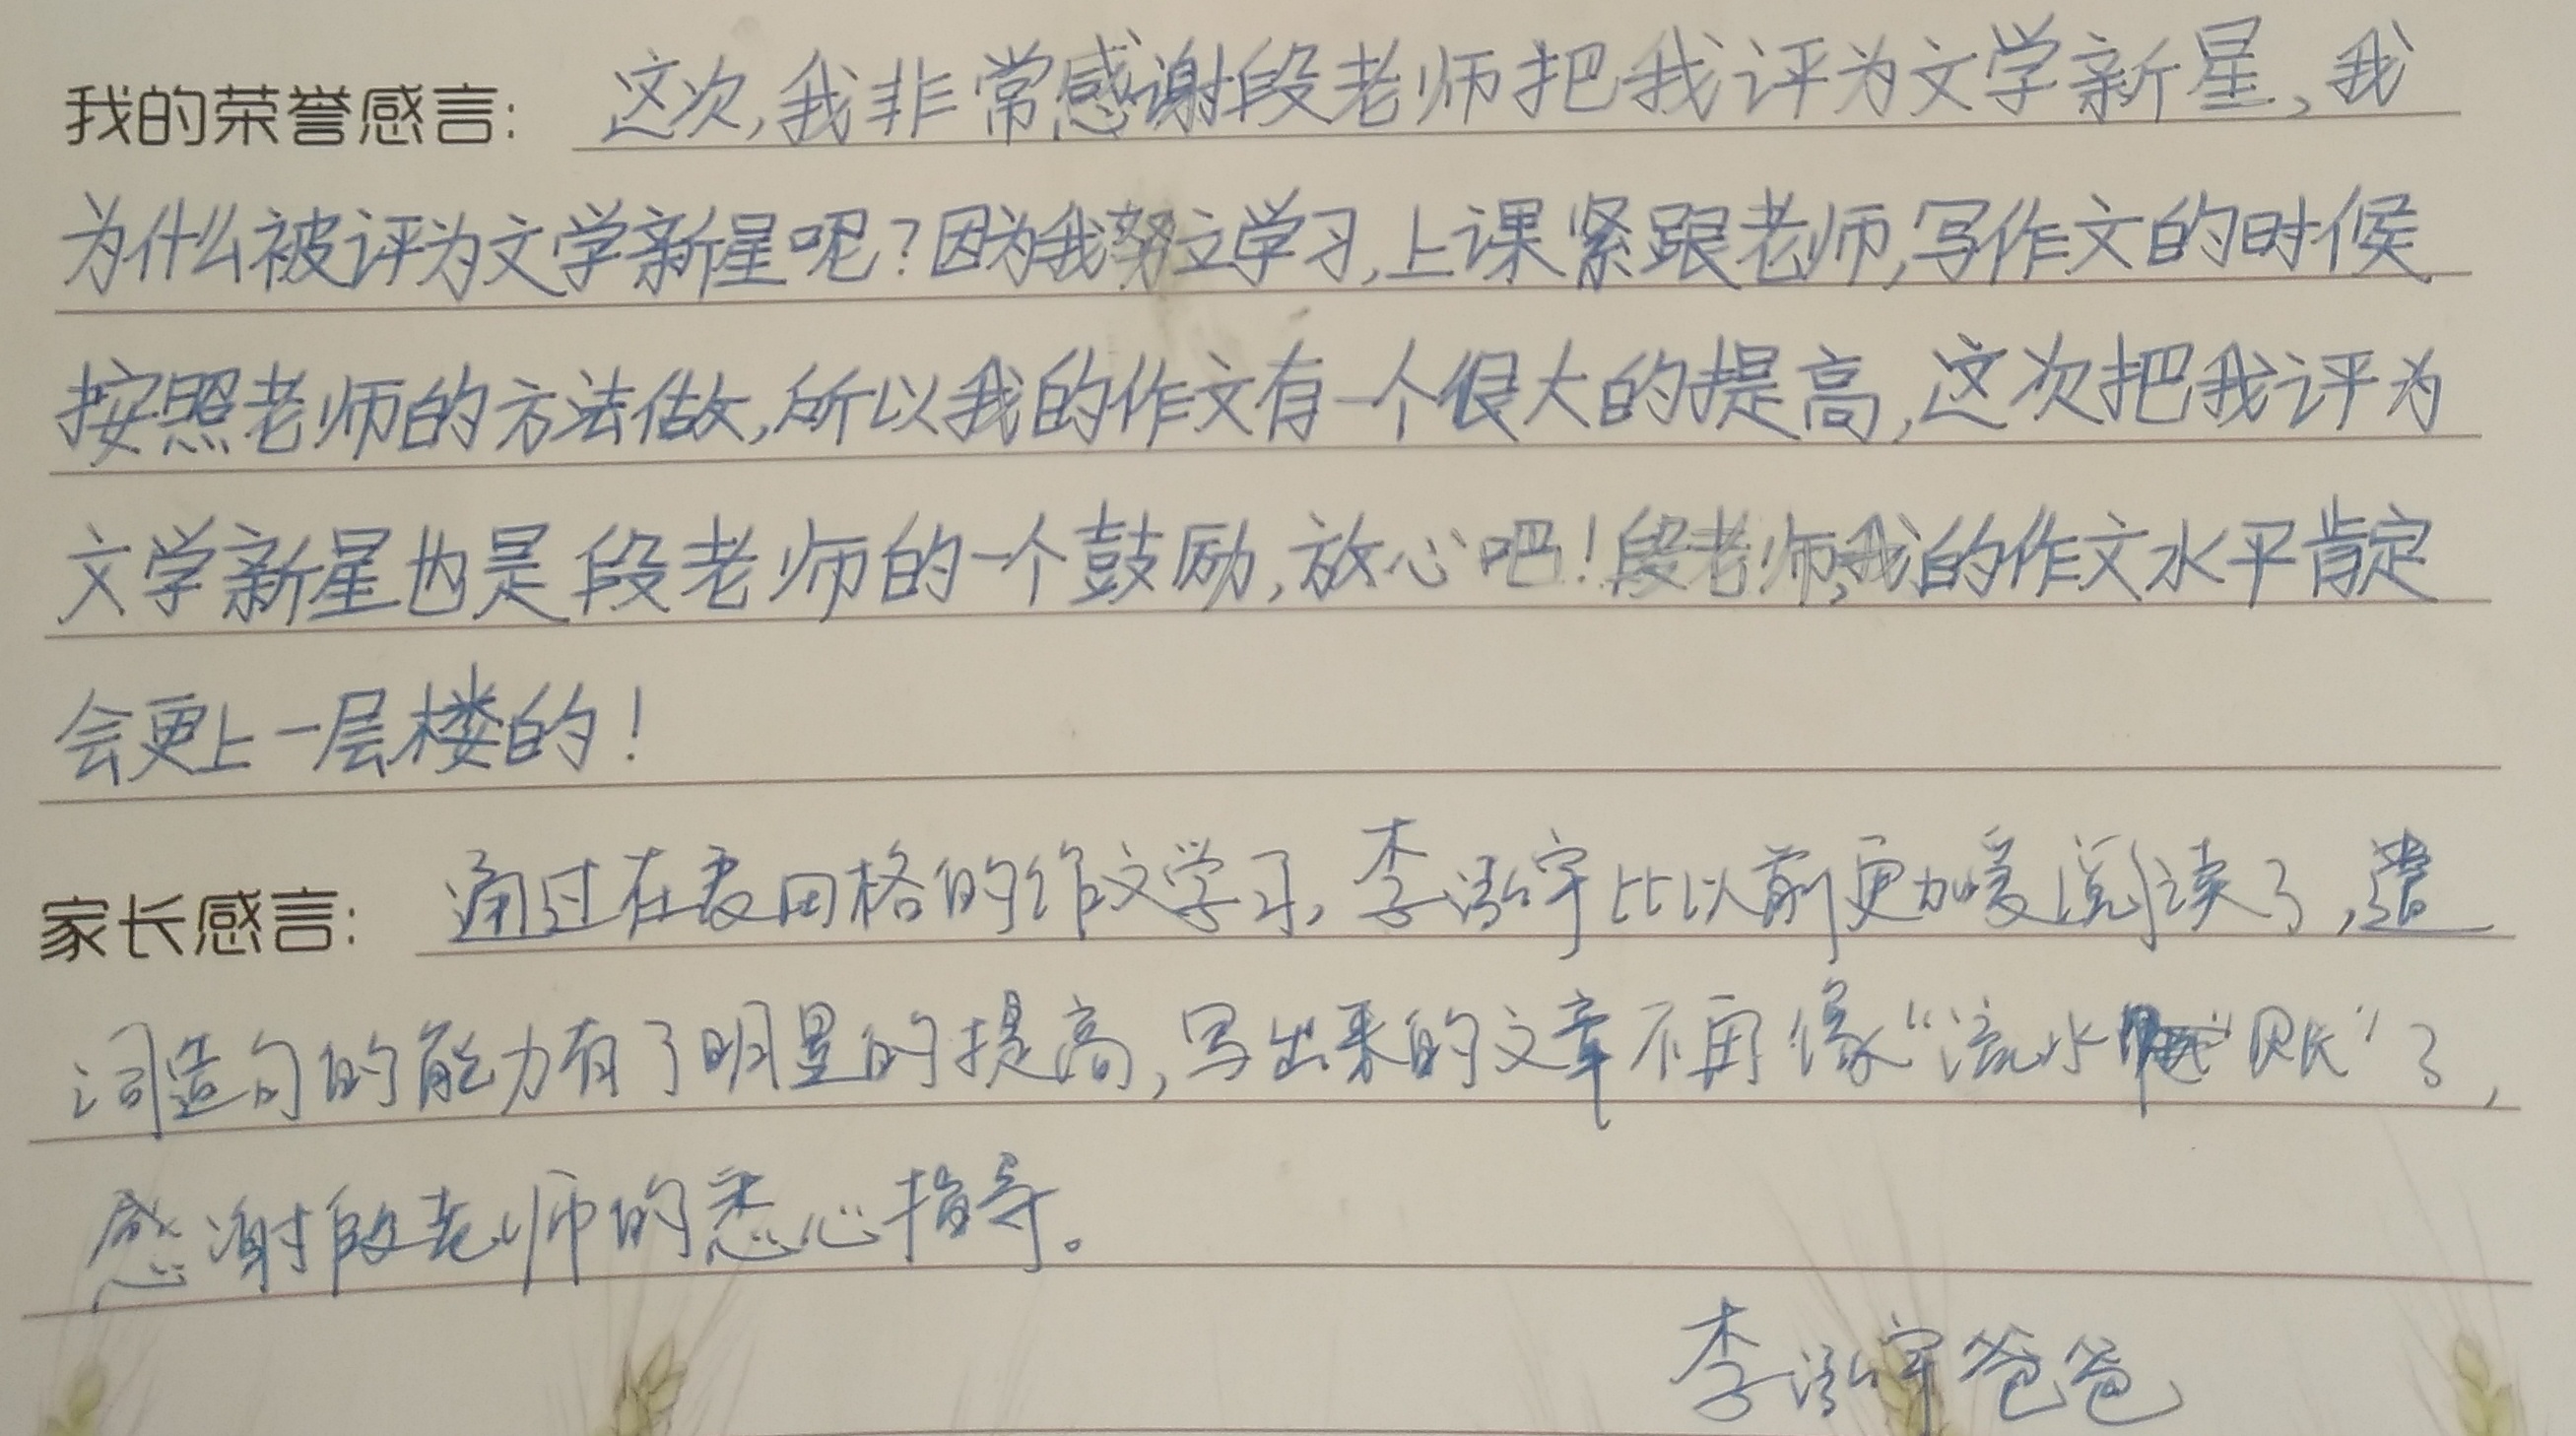 我的荣誉感言: 这次,我非常感谢段老师把我评为文学新星,我
为什么被评为文学新星呢?因为我努力学习,上课紧跟老师,写作文的时候
按照老师的方法做,所以我的作文有一个很大的提高,这次把我评为
文学新星也是段老师的一个鼓励,放心吧!段老师,我的作文水平肯定
会更上一层楼的!
家长感言: 通过在麦田格的作文学习,李泓宇比以前更加爱阅读了,遣
词造句的能力有了明显的提高,写出来的文章不再像“流水账”了,
感谢段老师的悉心指导。
李泓宇爸爸